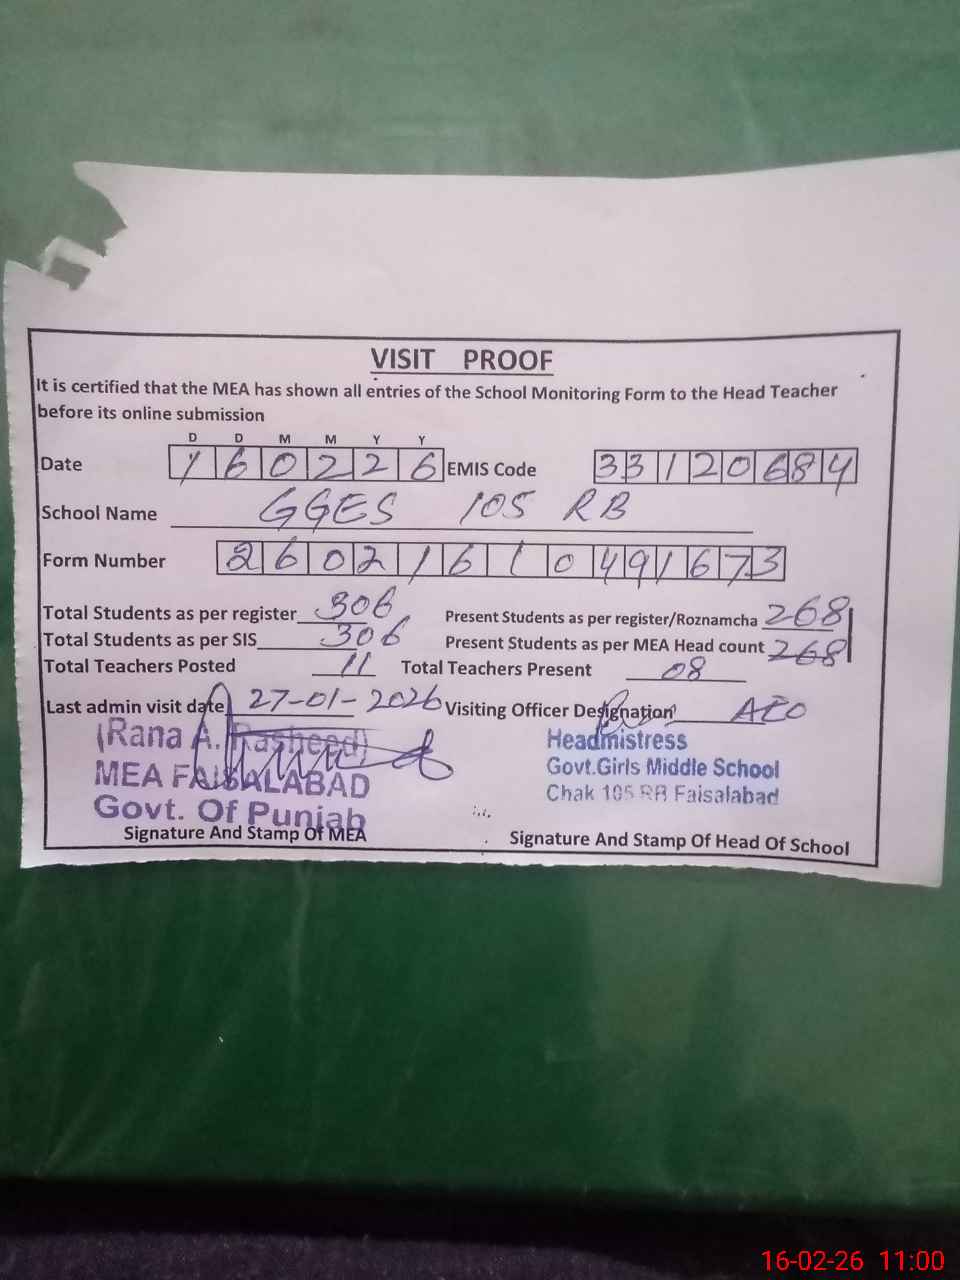 VISIT PROOF
It is certified that the MEA has shown all entries of the School Monitoring Form to the Head Teacher
before its online submission
D D M M Y Y
Date 160226 EMIS Code 33120684
School Name GGES 105 RB
Form Number 26021610491673
Total Students as per register 306 Present Students as per register/Roznamcha 268
Total Students as per SIS 306 Present Students as per MEA Head count 268
Total Teachers Posted 11 Total Teachers Present 08
Last admin visit date 27-01-2026 Visiting Officer Designation AEO
(Rana A. Rasheed) Headmistress
MEA FAISALABAD Govt.Girls Middle School
Govt. Of Punjab Chak 105 RB Faisalabad
Signature And Stamp Of MEA Signature And Stamp Of Head Of School
16-02-26 11:00